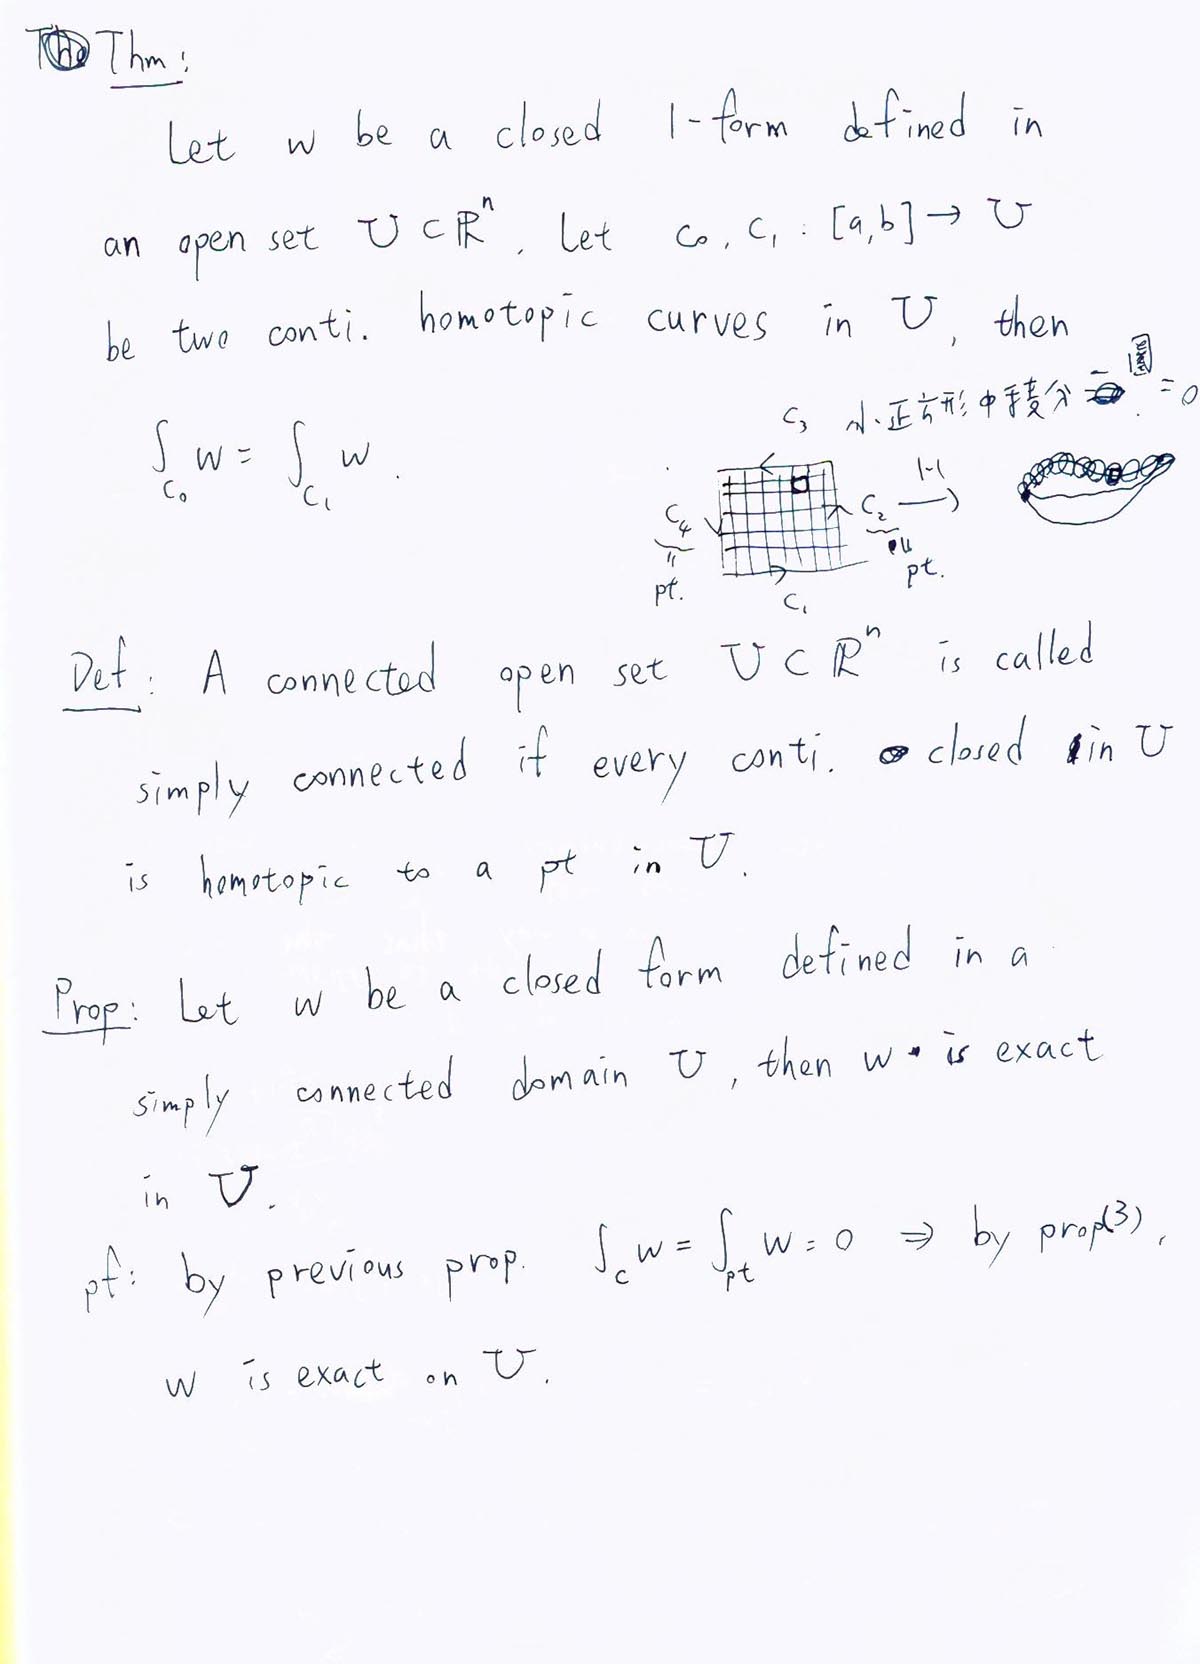 Thm:
Let w be a closed 1-form defined in
an open set U ⊂ ℝⁿ. Let c₀, c₁ : [a,b] → U
be two conti. homotopic curves in U, then
∫_{c₀} w = ∫_{c₁} w.
C₃ 小正方形中積分 = 0
C₄ C₂ 1-1 →
" "
pt. pt.
C₁
Def: A connected open set U ⊂ ℝⁿ is called
simply connected if every conti. closed in U
is homotopic to a pt in U.
Prop: Let w be a closed form defined in a
simply connected domain U, then w is exact
in U.
pf: by previous prop. ∫_c w = ∫_pt w = 0 ⇒ by prop(3),
w is exact on U.